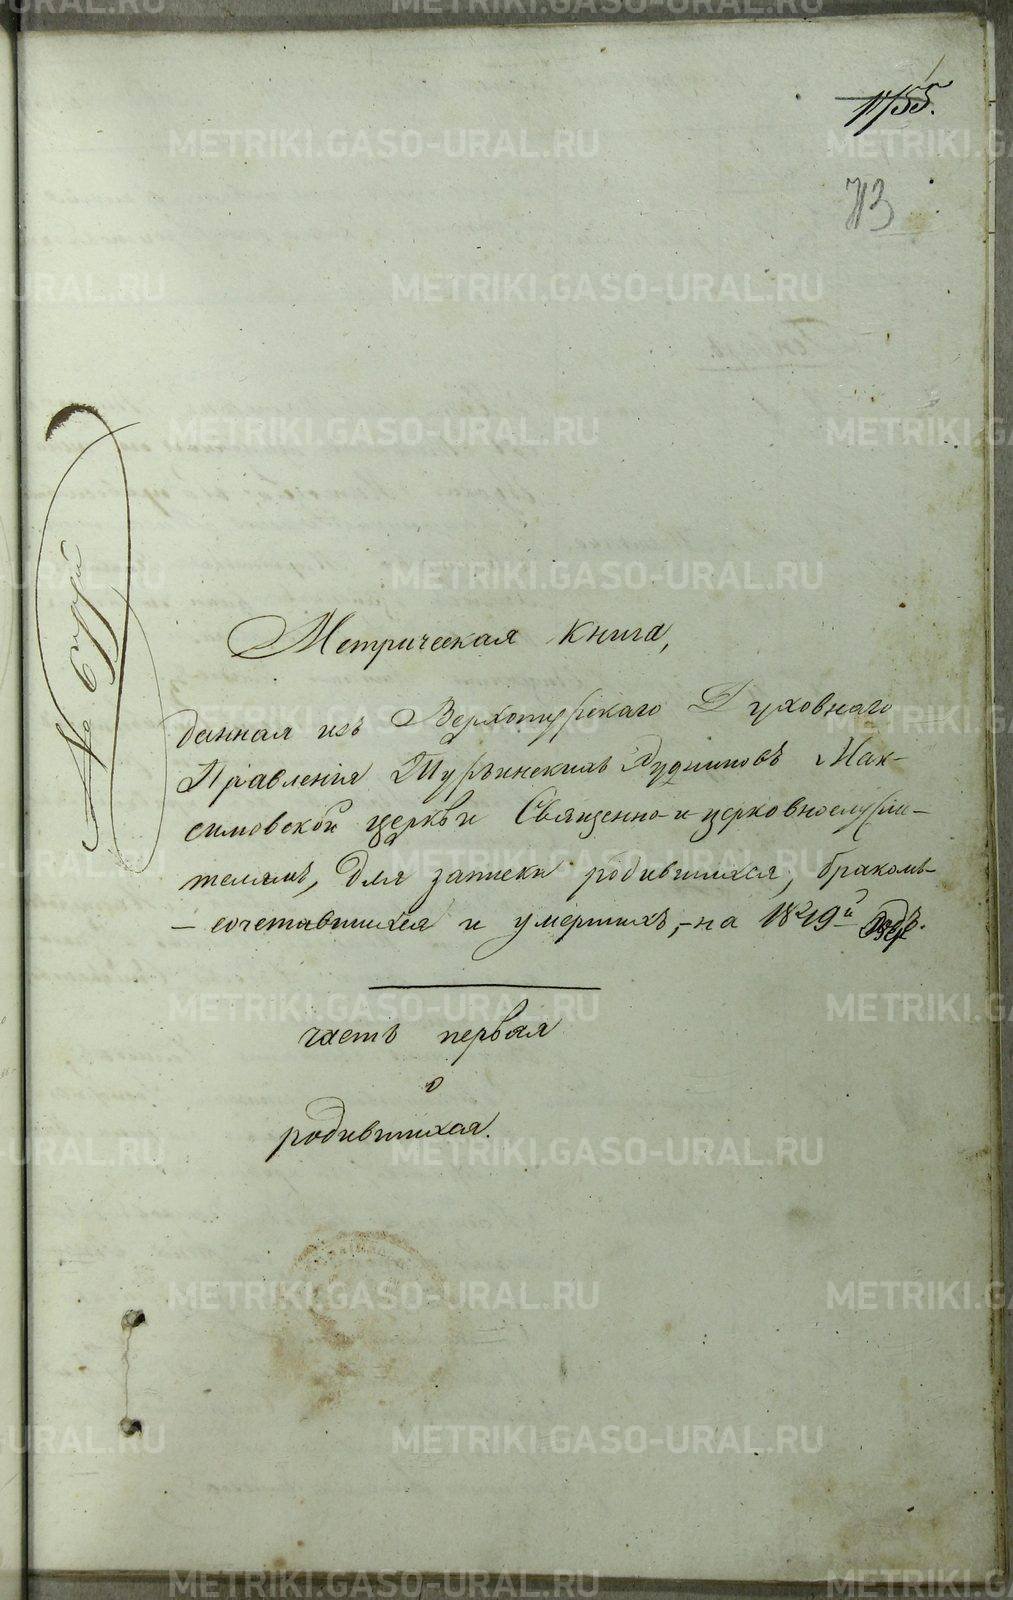 1155.
713
№ 6й
Метрическая книга,
данная изъ Верхотурскаго Духовнаго
Правленія Турьинскихъ Рудниковъ Мак-
симовской церкви Священно-и-церковнослужи-
телямъ, для записки родившихся, бракомъ-
-сочетавшихся и умершихъ,-на 1829й годъ.
часть первая
о
родившихся.
METRIKI.GASO-URAL.RU